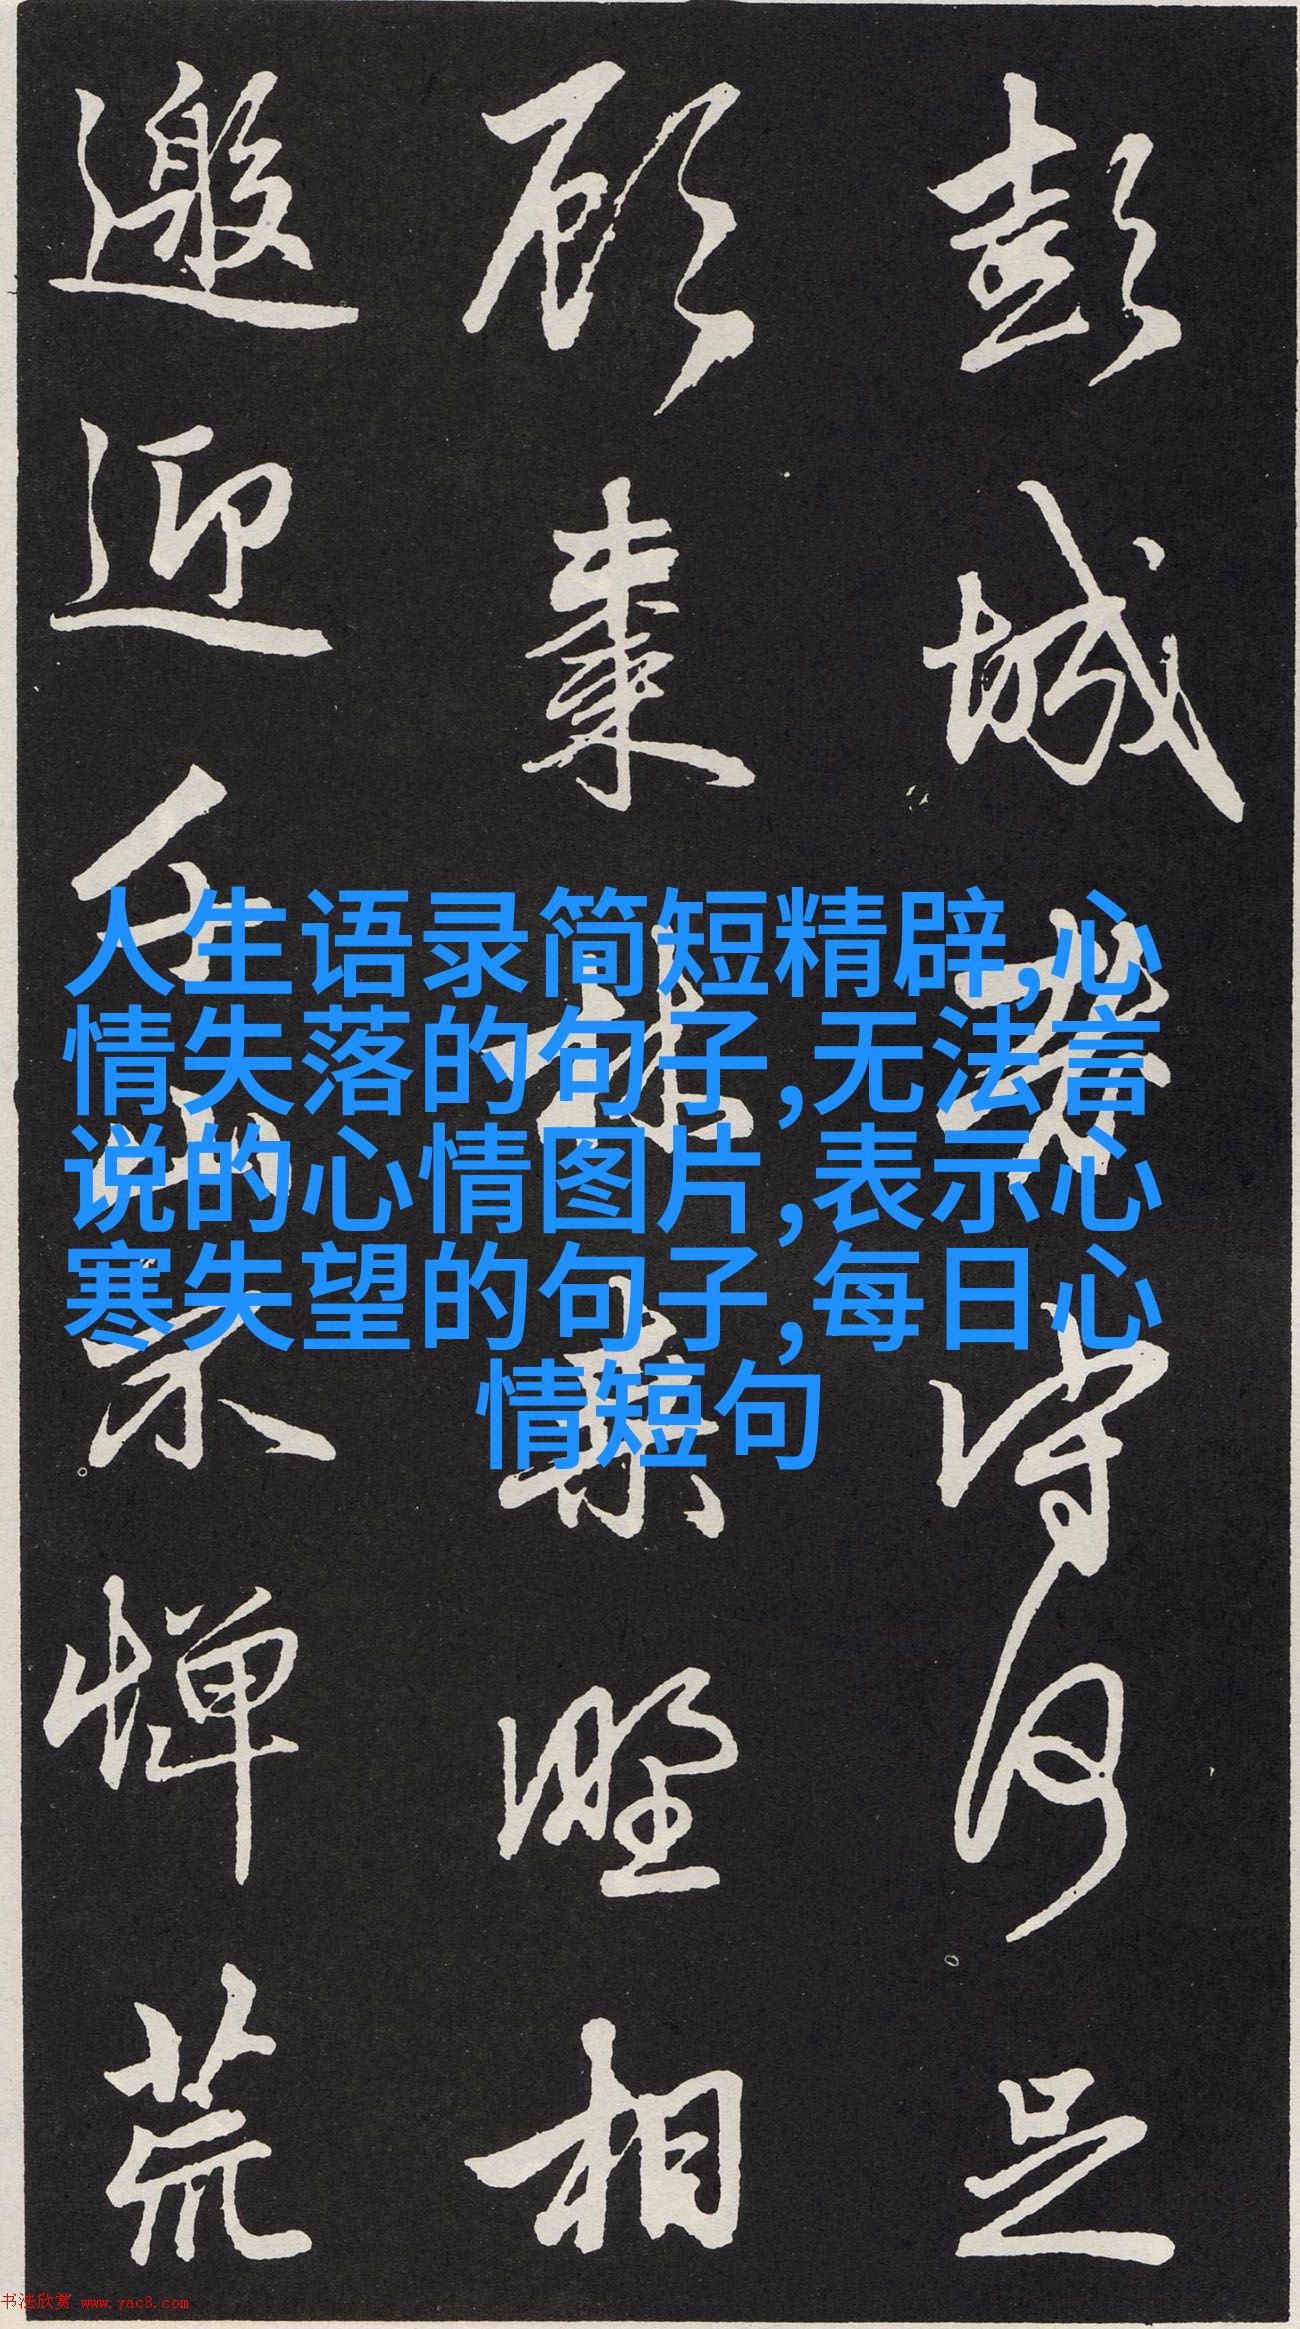 彭城老守何足
顧棗林桑野相
邀迎千山不憚荒
人生语录简短精辟,心
情失落的句子,无法言
说的心情图片,表示心
寒失望的句子,每日心
情短句
书法欣赏 www.yac8.com